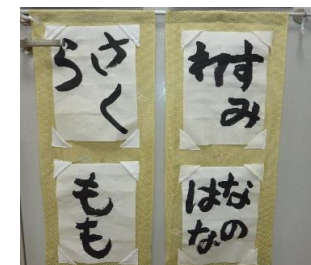 すみ
れ
なの
はな
さく
ら
もも